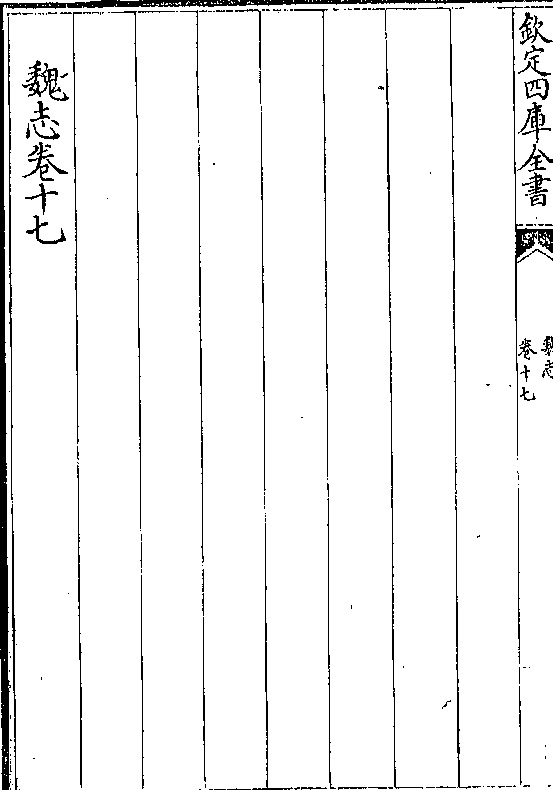 欽定四庫全書
魏志
卷十七
魏志卷十七